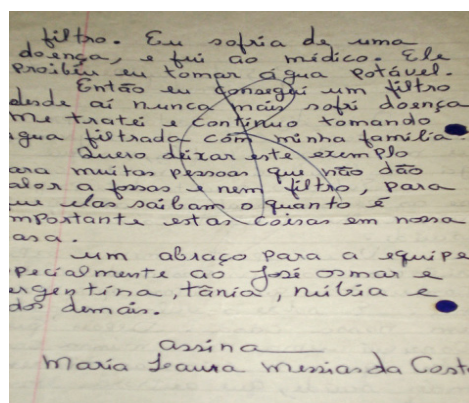 filtro. Eu sofria de uma
doença, e fui ao médico. Ele
proibiu eu tomar água potável.
Então eu consegui um filtro
desde aí nunca mais sofri doença
me tratei e continuo tomando
gua filtrada com minha família.
Quero deixar este exemplo
ara muitas pessoas que não dão
alor a fossas e nem filtro, para
ue elas saibam o quanto é
mportante estas coisas em nossa
asa.
um abraço para a equipe
specialmente ao José osmar e
ergentina, tânia, núbia e
dos demais.
assina
Maria Laura Messias da Costa